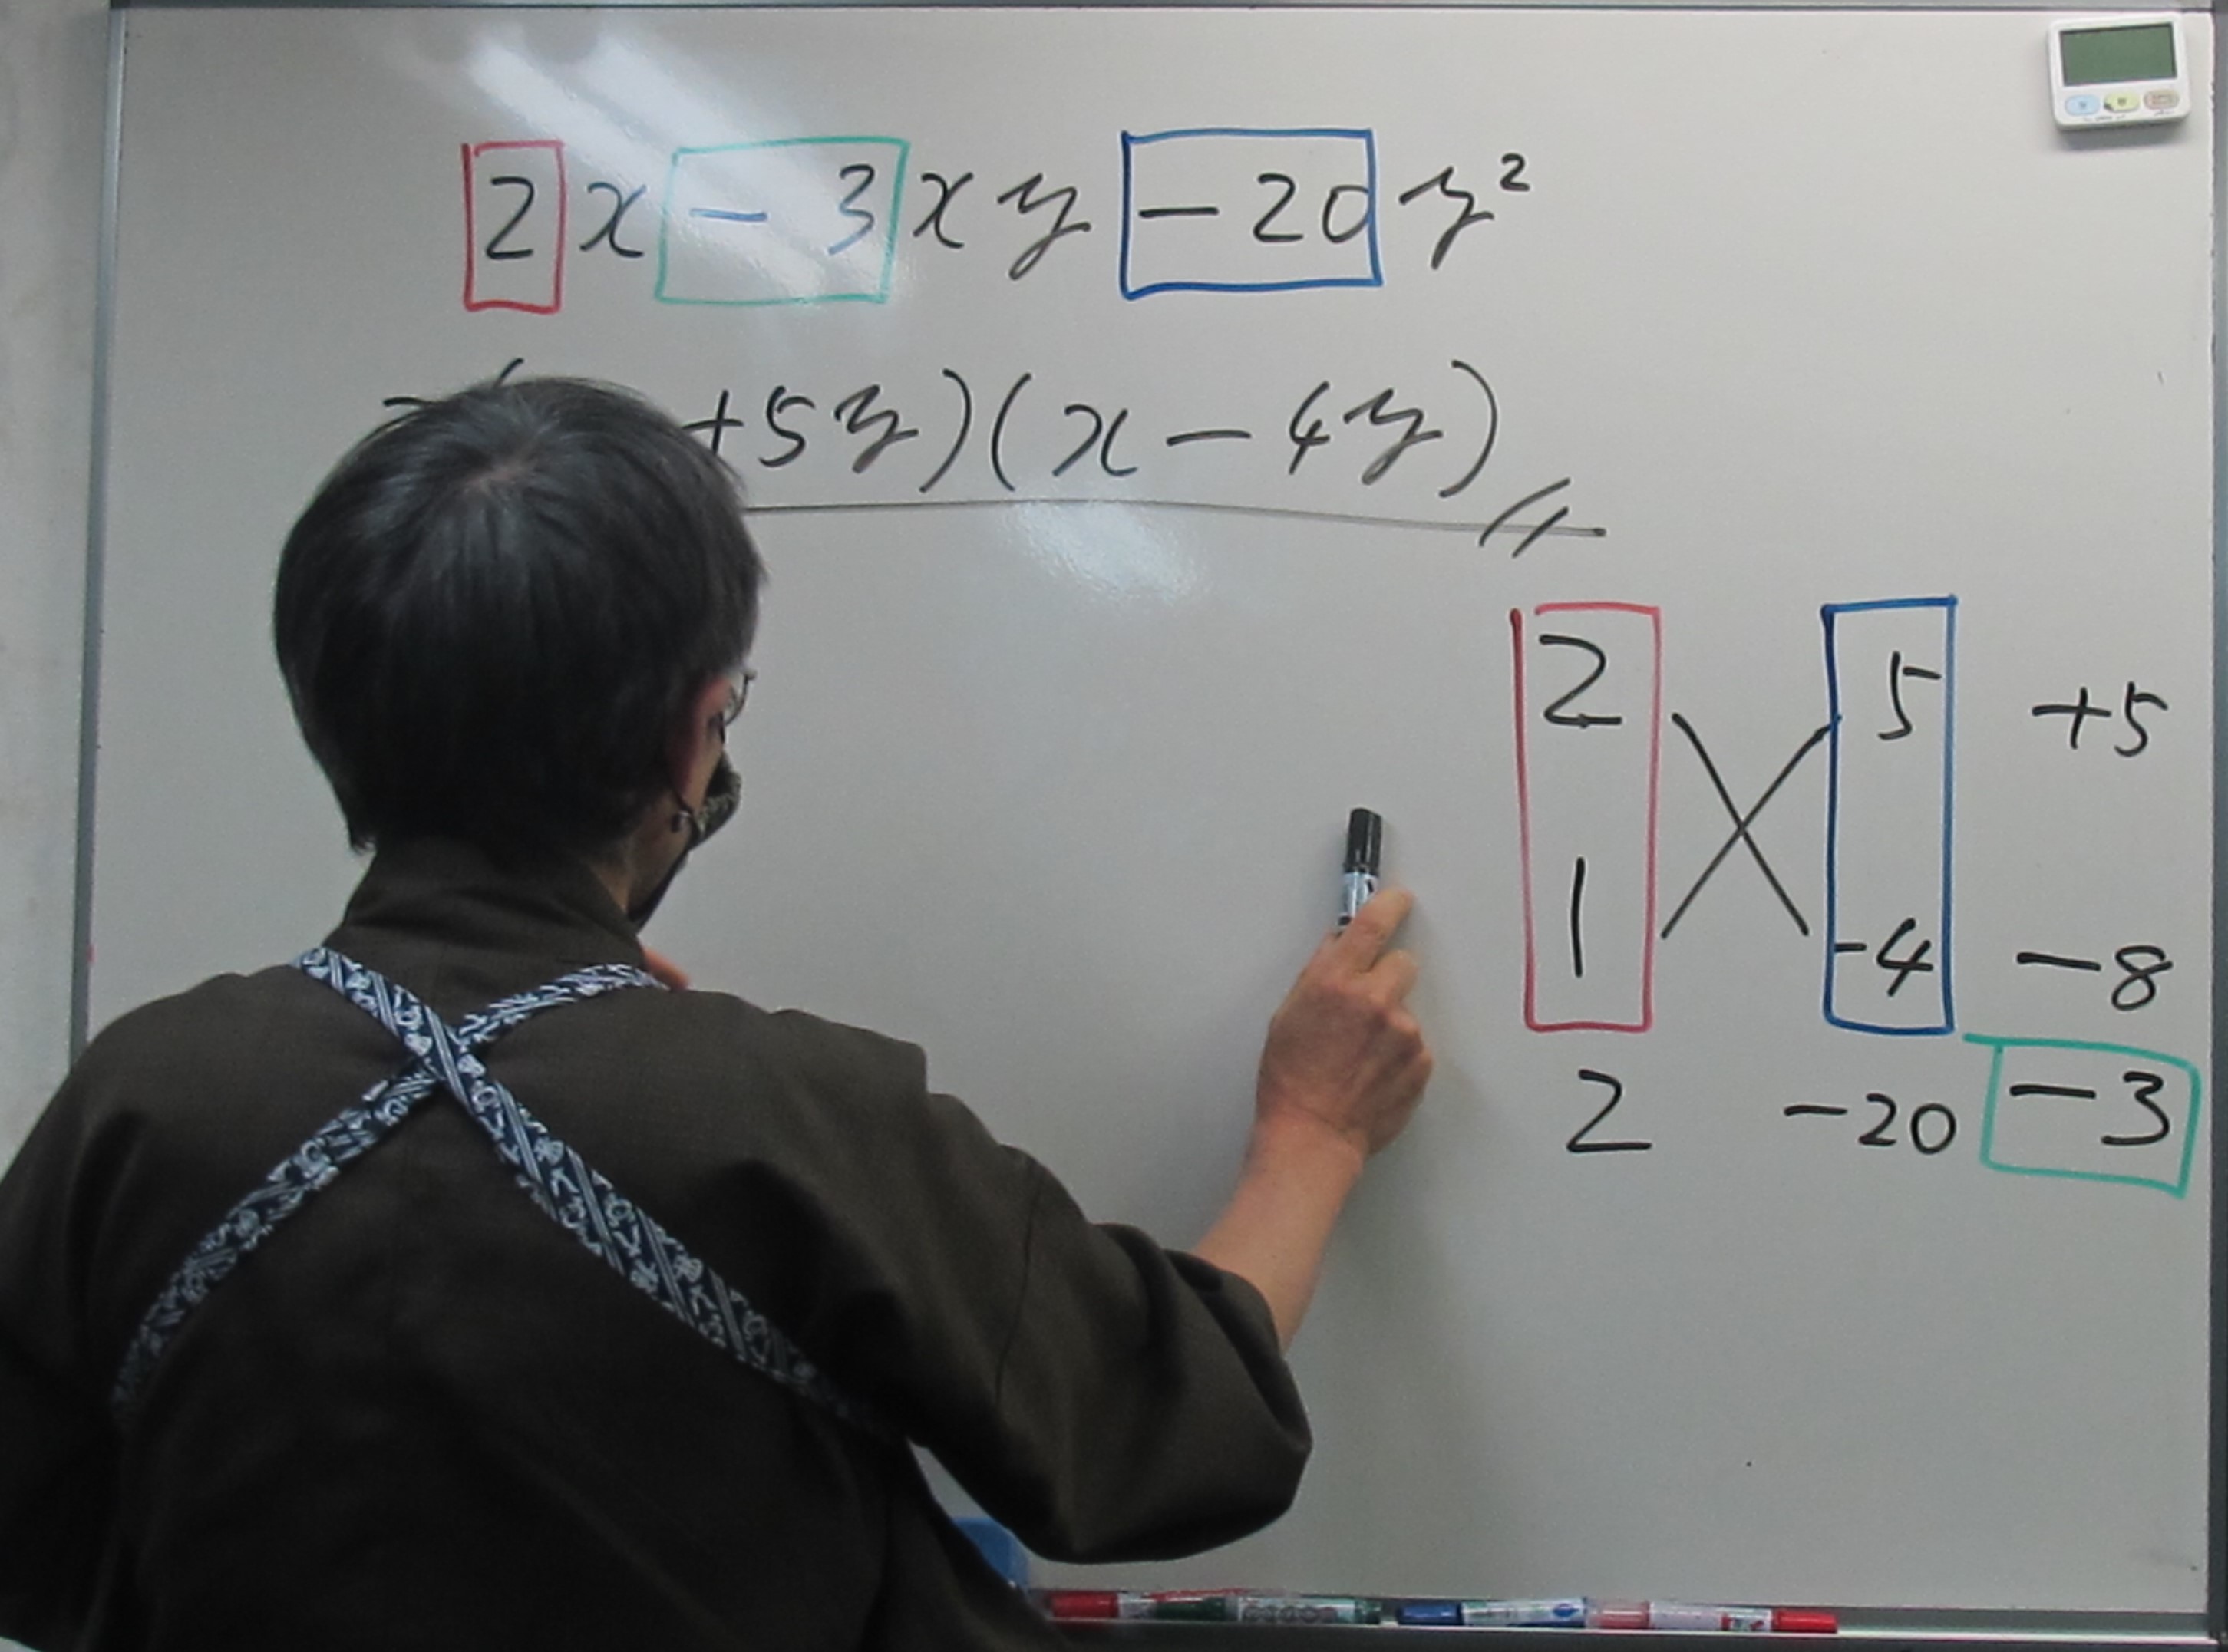 2x-3xy-20y²
+5y)(x-4y)
2 5 +5
1 -4 -8
2 -20 -3